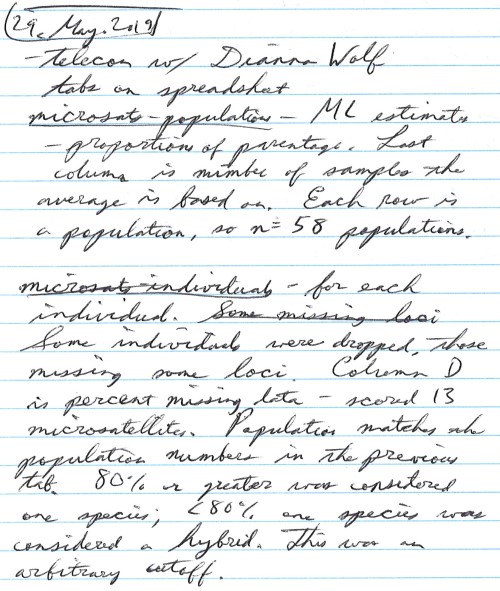 29. May. 2019
- telecon w/ Dianna Wolf
tabs on spreadsheet
microsats-populations - ML estimates
- proportions of parentage. Last
column is number of samples the
average is based on. Each row is
a population, so n = 58 populations.
microsats-individuals - for each
individual. Some missing loci
Some individuals were dropped, those
missing some loci. Column D
is percent missing data - scored 13
microsatellites. Population matches the
population numbers in the previous
tab. 80% or greater was considered
one species; <80% one species was
considered a hybrid. This was an
arbitrary cutoff.